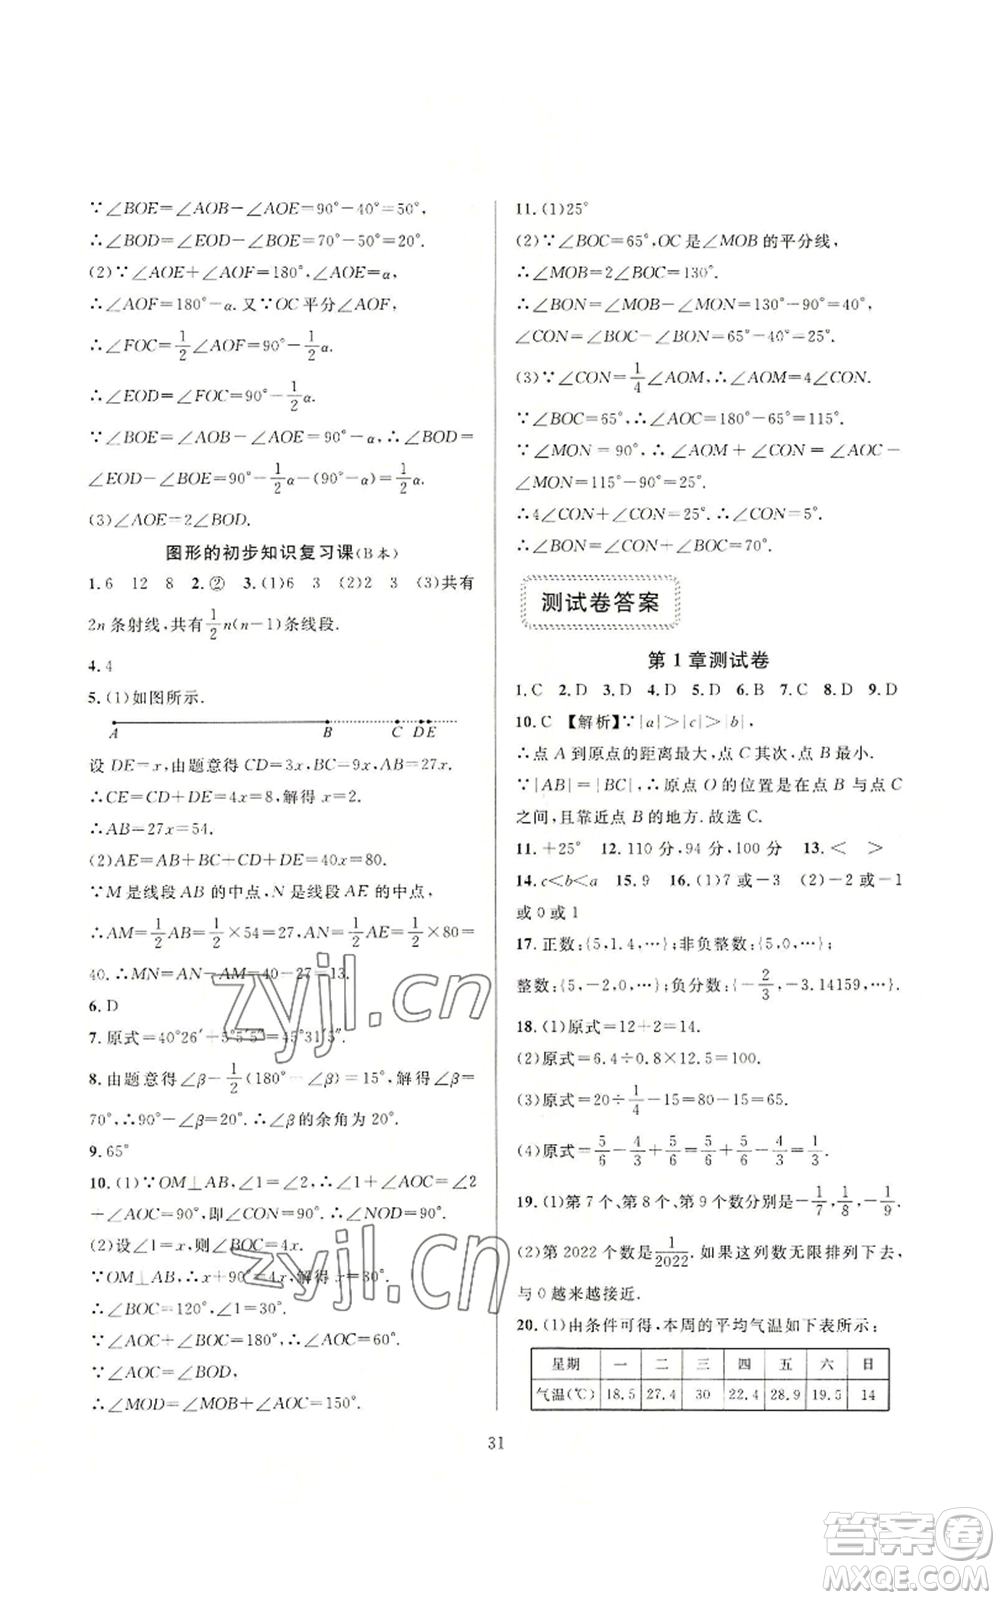 ∵∠BOE=∠AOB-∠AOE=90°-40°=50°,
∴∠BOD=∠EOD-∠BOE=70°-50°=20°.
(2)∵∠AOE+∠AOF=180°,∠AOE=α,
∴∠AOF=180°-α.又∵OC平分∠AOF,
∴∠FOC=1/2∠AOF=90°-1/2α.
∴∠EOD=∠FOC=90°-1/2α.
∵∠BOE=∠AOB-∠AOE=90°-α,∴∠BOD=
∠EOD-∠BOE=90°-1/2α-(90°-α)=1/2α.
(3)∠AOE=2∠BOD.
图形的初步知识复习课(B本)
1.6 12 8 2.② 3.(1)6 3 (2)2 3 (3)共有
2n条射线,共有1/2n(n-1)条线段.
4.4
5.(1)如图所示.
A B C D E
设DE=x,由题意得CD=3x,BC=9x,AB=27x.
∴CE=CD+DE=4x=8,解得x=2.
∴AB=27x=54.
(2)AE=AB+BC+CD+DE=40x=80.
∵M是线段AB的中点,N是线段AE的中点,
∴AM=1/2AB=1/2×54=27,AN=1/2AE=1/2×80=
40.∴MN=AN-AM=40-27=13.
6.D
7.原式=40°26′+5°5′5″=45°31′5″.
8.由题意得∠β-1/2(180°-∠β)=15°,解得∠β=
70°,∴90°-∠β=20°.∴∠β的余角为20°.
9.65°
10.(1)∵OM⊥AB,∠1=∠2,∴∠1+∠AOC=∠2
+∠AOC=90°,即∠CON=90°.∴∠NOD=90°.
(2)设∠1=x,则∠BOC=4x.
∵OM⊥AB,∴x+90°=4x,解得x=30°.
∴∠BOC=120°,∠1=30°.
∵∠AOC+∠BOC=180°,∴∠AOC=60°.
∵∠BOD=∠AOC,
∴∠MOD=∠MOB+∠AOC=150°.
11.(1)25°
(2)∵∠BOC=65°,OC是∠MOB的平分线,
∴∠MOB=2∠BOC=130°.
∴∠BON=∠MOB-∠MON=130°-90°=40°,
∠CON=∠BOC-∠BON=65°-40°=25°.
(3)∵∠CON=1/4∠AOM,∴∠AOM=4∠CON.
∵∠BOC=65°,∴∠AOC=180°-65°=115°.
∵∠MON=90°,∴∠AOM+∠CON=∠AOC-
∠MON=115°-90°=25°.
∴4∠CON+∠CON=25°.∴∠CON=5°.
∴∠BON=∠CON+∠BOC=70°.
测试卷答案
第1章测试卷
1.C 2.D 3.D 4.D 5.D 6.B 7.C 8.D 9.D
10.C 【解析】∵|a|>|c|>|b|,
∴点A到原点的距离最大,点C其次,点B最小.
∵|AB|=|BC|,∴原点O的位置是在点B与点C
之间,且靠近点B的地方.故选C.
11.+25° 12.110分,94分,100分 13.< >
14.c<b<a 15.9 16.(1)7或-3 (2)-2或-1
或0或1
17.正数:{5,1.4,…};非负整数:{5,0,…};
整数:{5,-2,0,…};负分数:{-2/3,-3.14159,…}.
18.(1)原式=12+2=14.
(2)原式=6.4÷0.8×12.5=100.
(3)原式=20÷1/4-15=80-15=65.
(4)原式=5/6-4/3+5/6=5/3-4/3=1/3.
19.(1)第7个、第8个、第9个数分别是-1/7,1/8,-1/9.
(2)第2022个数是1/2022.如果这列数无限排列下去,
与0越来越接近.
20.(1)由条件可得,本周的平均气温如下表所示:
星期 一 二 三 四 五 六 日
气温(℃) 18.5 27.4 30 22.4 28.9 19.5 14
31
zyjl.cn
zyjl.cn
答案卷
MXQE.COM